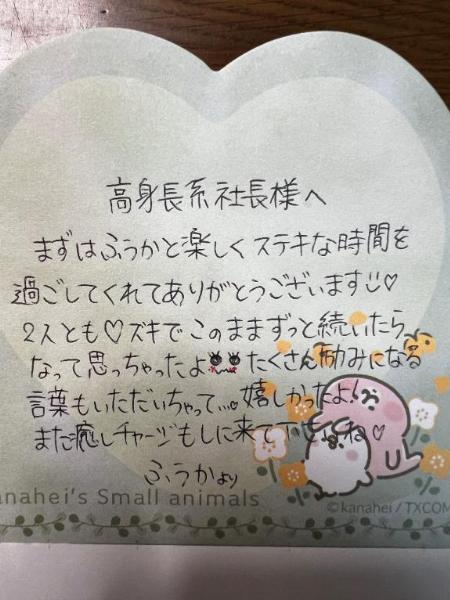 高身長系社長様へ
まずはふうかと楽しくステキな時間を
過ごしてくれてありがとうございます♡
2人とも♡ズキでこのままずっと続いたら
なって思っちゃったよ たくさん励みになる
言葉もいただいちゃって...嬉しかったよ!
また癒しチャージもしに来て下さいね♡
ふうかより
anahei's Small animals
©kanahei / TXCOM